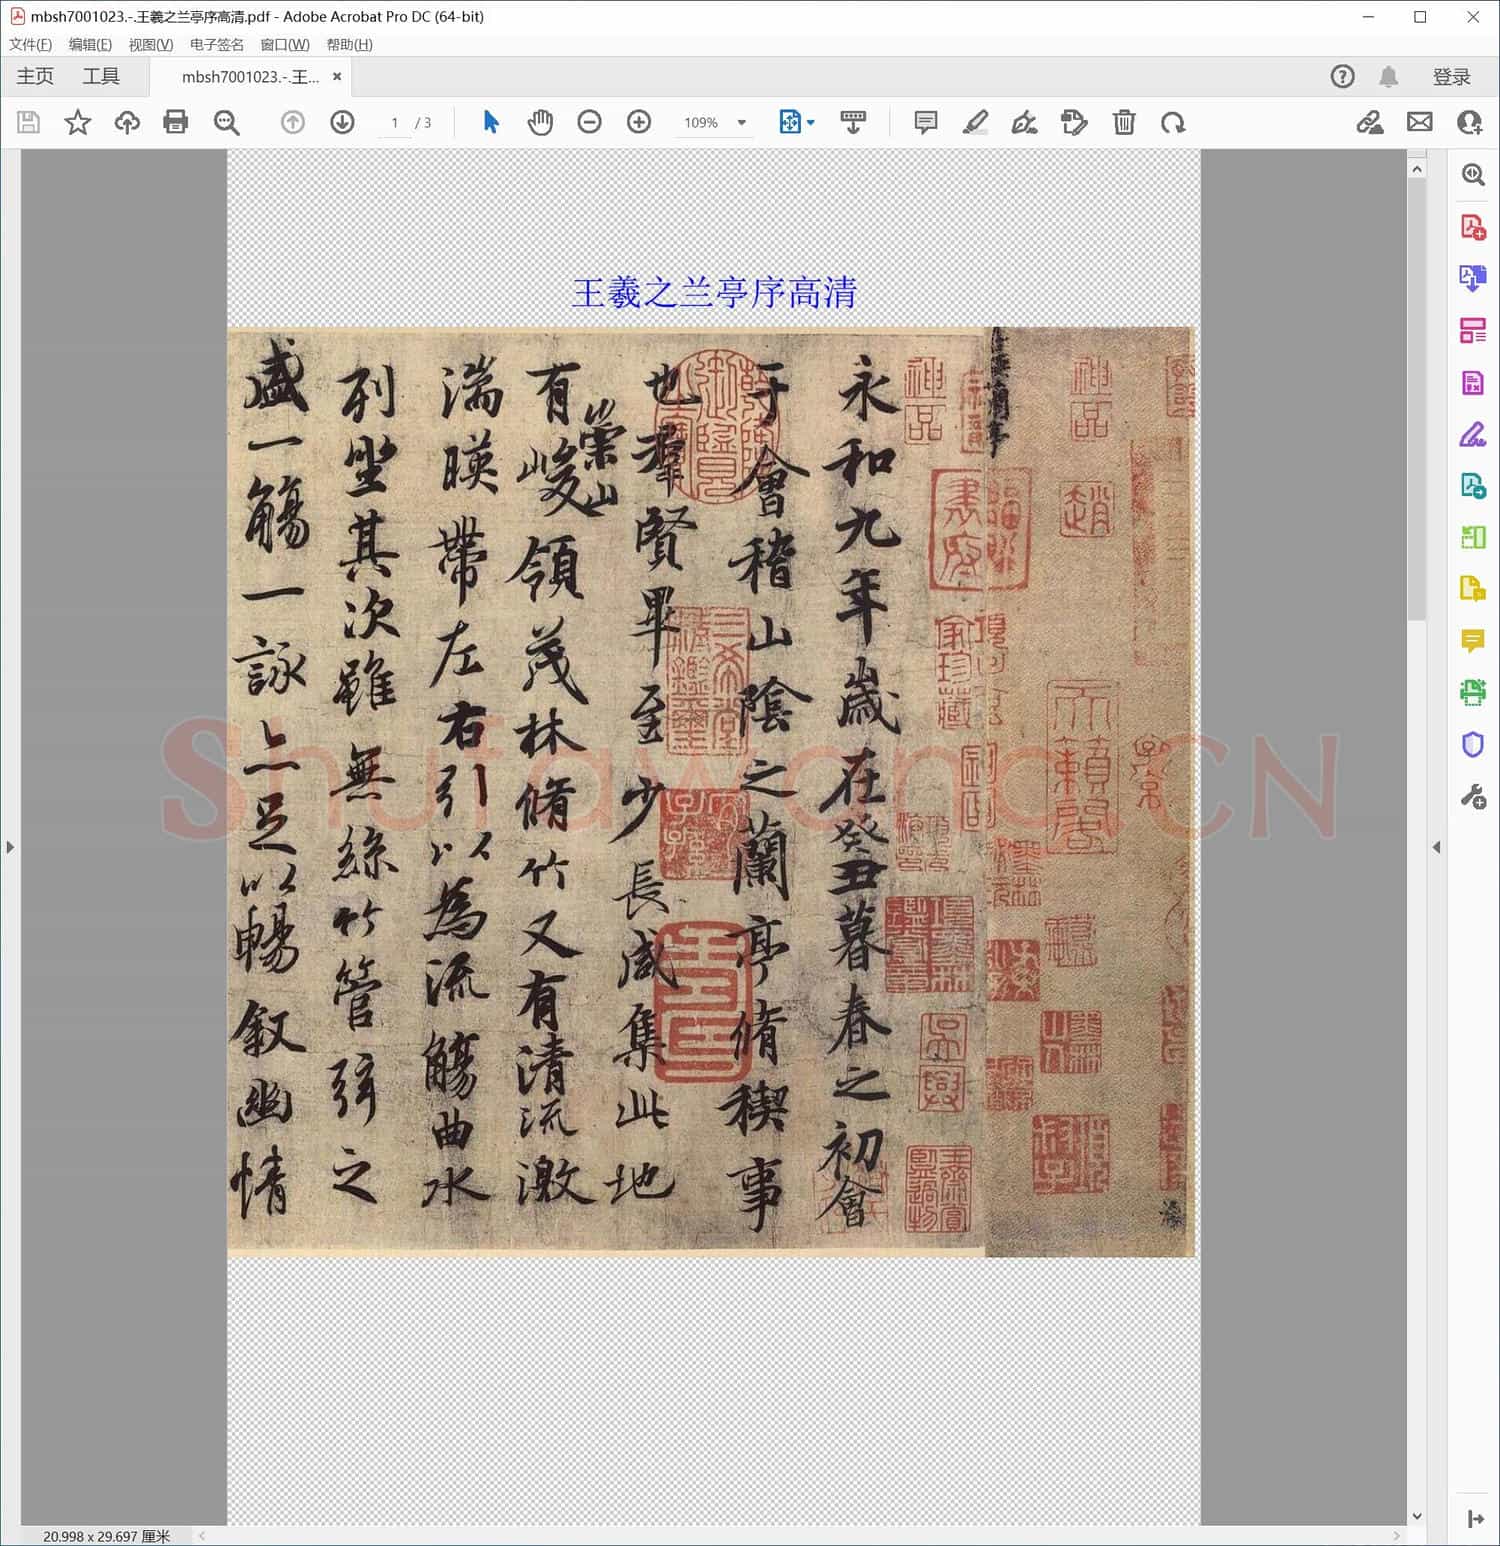 mbsh7001023.-.王羲之兰亭序高清.pdf - Adobe Acrobat Pro DC (64-bit)
文件(F) 编辑(E) 视图(V) 电子签名 窗口(W) 帮助(H)
主页 工具 mbsh7001023.-.王... × 登录
1 / 3 109%
王羲之兰亭序高清
永和九年歲在癸丑暮春之初會
于會稽山陰之蘭亭脩稧事
也羣賢畢至少長咸集此地
有崇山峻領茂林脩竹又有清流激
湍暎帶左右引以為流觴曲水
列坐其次雖無絲竹管弦之
盛一觴一詠上足以暢敘幽情
神品
神品
趙
書府
家珍藏
天籟閣
吳興
ShufawangCN
20.998 x 29.697 厘米